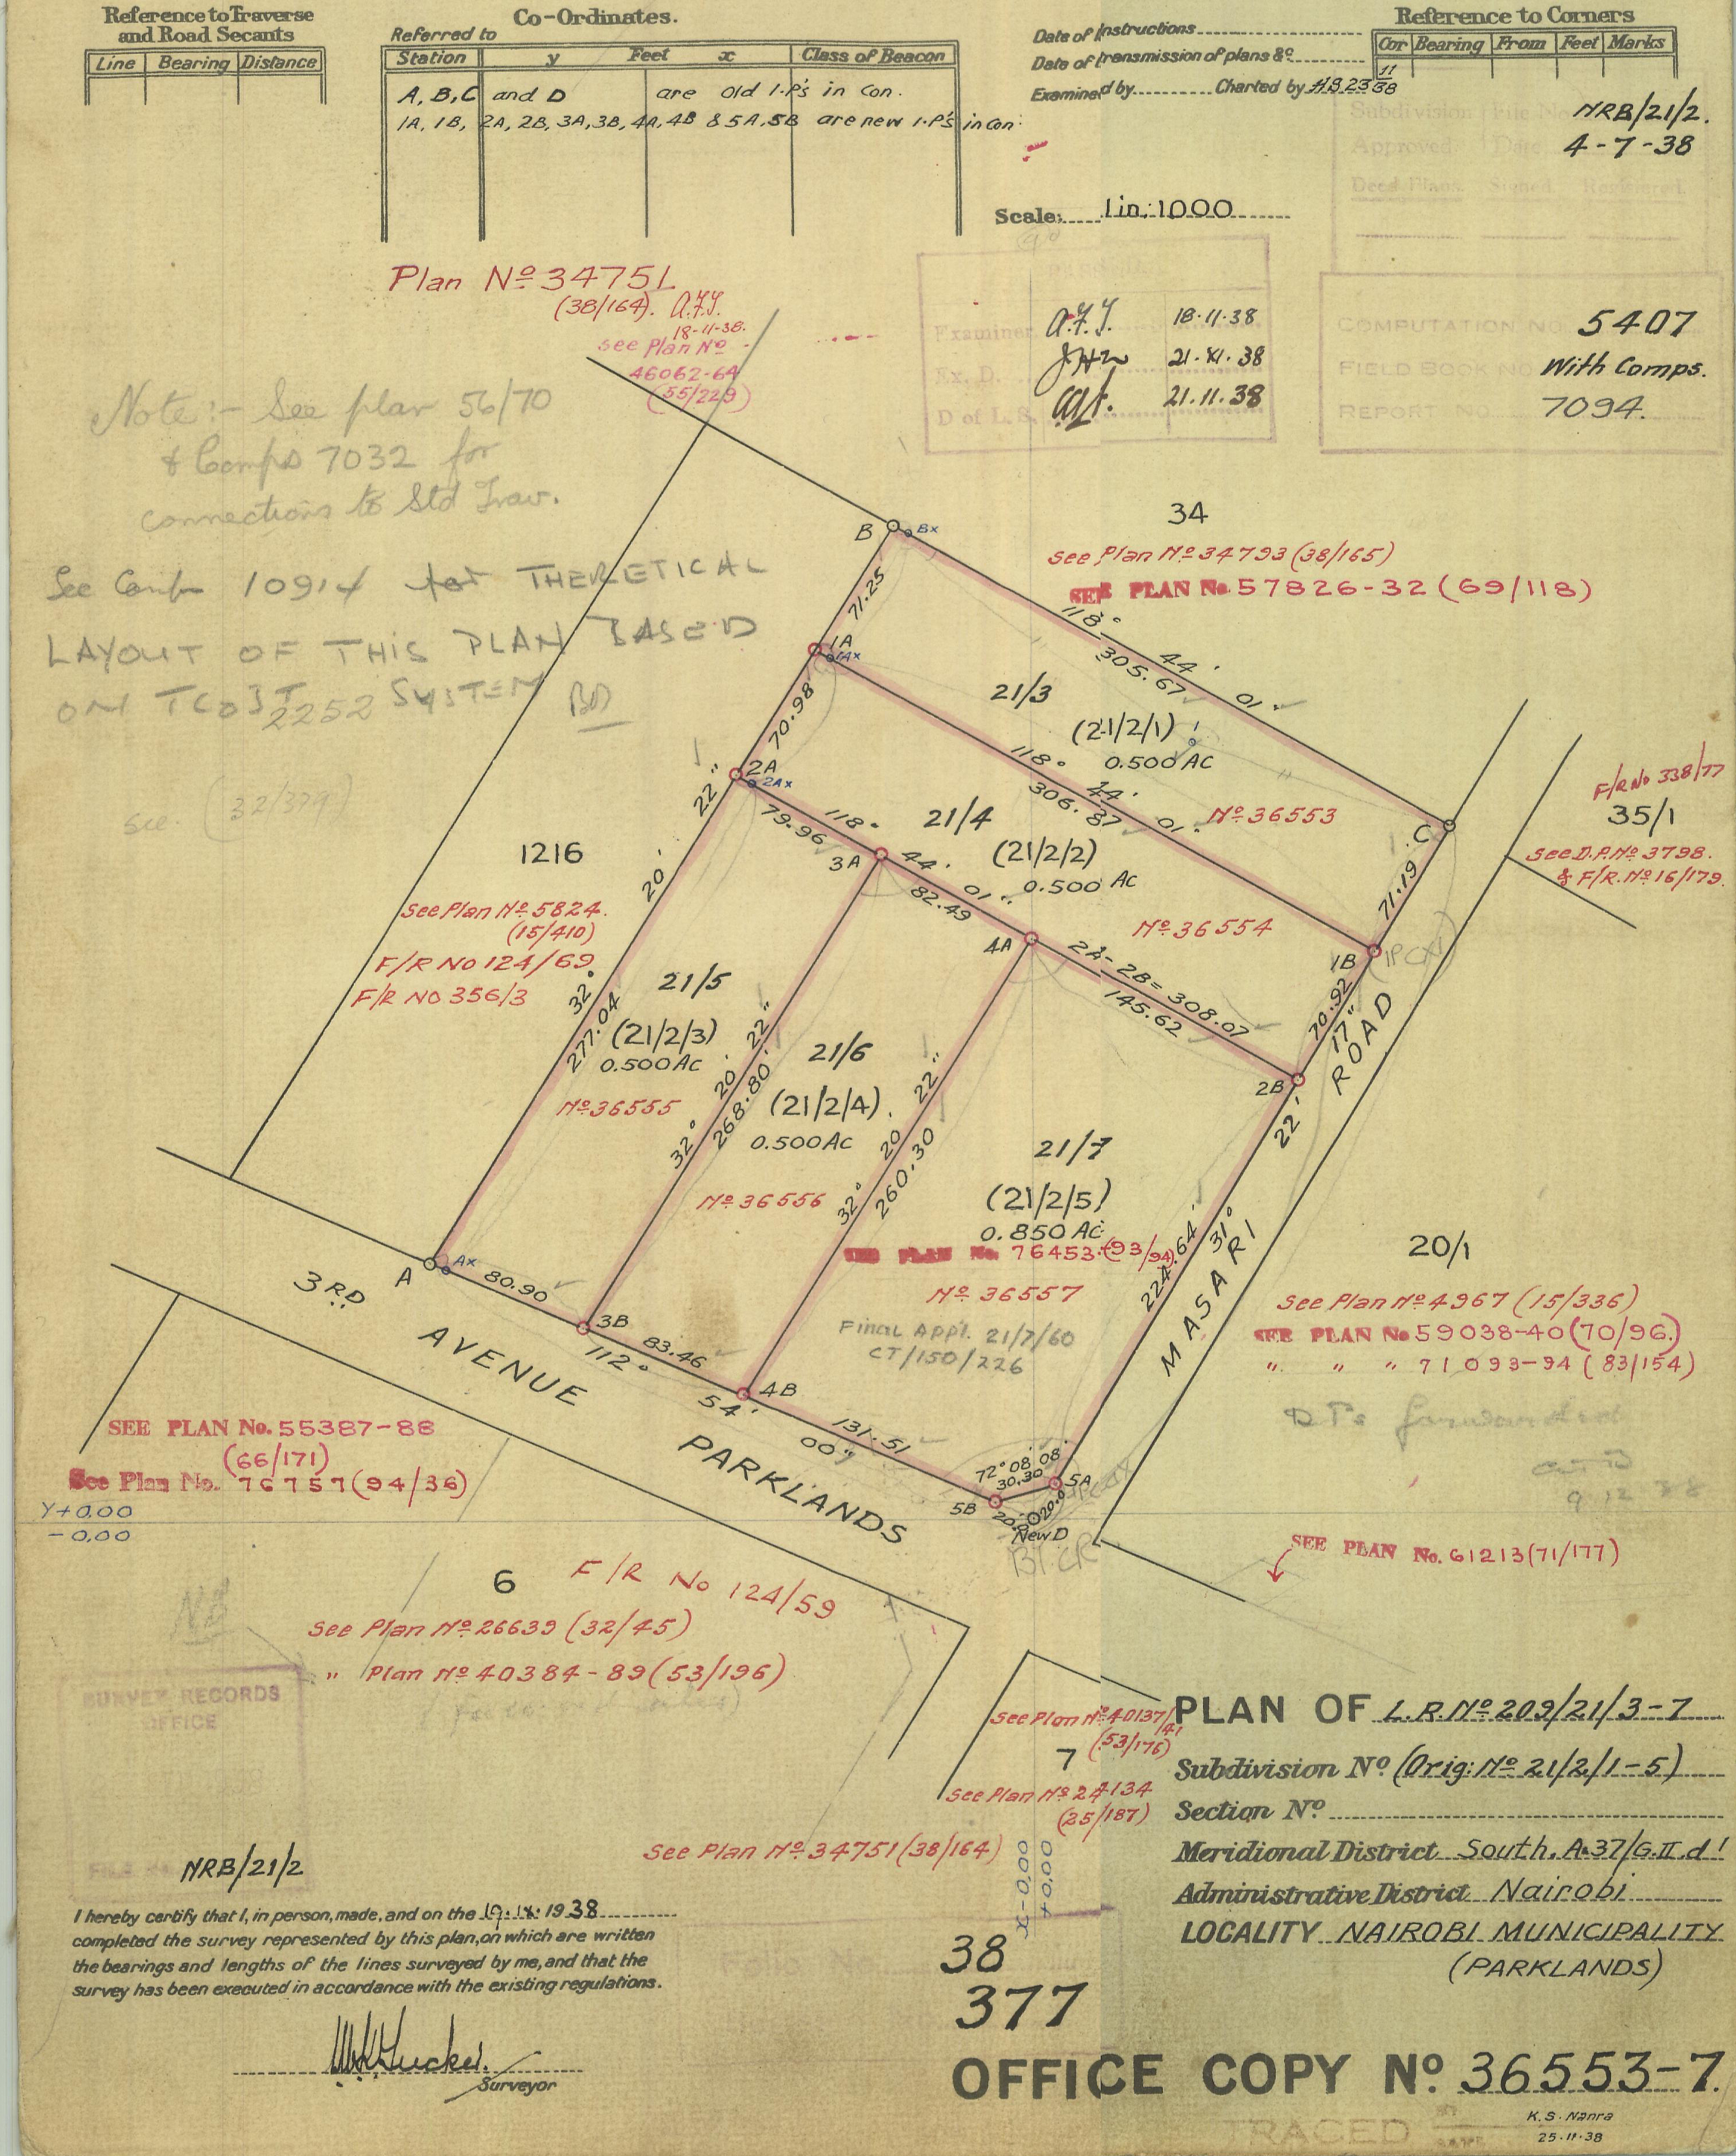 Reference to Traverse
and Road Secants
Line Bearing Distance
Co-Ordinates.
Referred to
Station y Feet x Class of Beacon
A, B, C and D are Old I.P's in Con.
1A, 1B, 2A, 2B, 3A, 3B, 4A, 4B & 5A, 5B are new I.P's in Con.
Date of Instructions
Date of transmission of plans &c.
Examined by Charted by H.S. 23 11/38
Reference to Corners
Cor Bearing From Feet Marks
Subdivision File No NRB/21/2.
Approved Date 4-7-38
Deed Plans Signed Registered
Scale: 1 in: 1000
Plan Nº 34751
(38/164). A.F.J.
18-11-38.
See Plan Nº
46062-64
(55/229)
Examiner A.F.J. 18.11.38
Ex. D. 21.XI.38
D of L.S. 21.11.38
COMPUTATION NO 5407
FIELD BOOK NO With Comps.
REPORT NO. 7094.
Note:- See plan 56/70
& Comps 7032 for
connections to Std Trav.
See Comp 10914 for THERETICAL
LAYOUT OF THIS PLAN BASED
ON 2252 SYSTEM
see. (32/379)
34
See Plan Nº 34793 (38/165)
SEE PLAN No. 57826-32 (69/118)
B Bx
71.25
118° 44' 01"
305.67
1A 1Ax
70.98
21/3
(21/2/1)
0.500 AC
118° 44' 01"
306.87
Nº 36553
2A 2Ax
22"
79.96
118° 44' 01"
21/4
(21/2/2)
0.500 AC
Nº 36554
3A
82.49
4A
2A-2B = 308.07
145.62
C
71.19
1B
70.92
17"
2B
22'
ROAD
F/R No 338/77
35/1
See D.P. Nº 3798.
& F/R. Nº 16/179.
1216
See Plan Nº 5824.
(15/410)
F/R NO 124/69
F/R NO 356/3
20'
32°
277.04
21/5
(21/2/3)
0.500 Ac
Nº 36555
32° 20' 22"
268.80
21/6
(21/2/4)
0.500 AC
Nº 36556
32° 20' 22"
260.30
21/7
(21/2/5)
0.850 Ac.
SEE PLAN No. 76453 (93/94)
Nº 36557
Final Appl. 21/7/60
CT/150/226
224.64
31°
MASARI
20/1
See Plan Nº 4967 (15/336)
SEE PLAN No 59038-40 (70/96.)
" " " 71093-94 (83/154)
A Ax
80.90
3B
83.46
112°
4B
54'
131.51
00"
72° 08' 08"
30.30
5A
5B
20.0
20.0
New D
3RD AVENUE PARKLANDS
SEE PLAN No. 55387-88
(66/171)
See Plan No. 76757 (94/36)
Y+0.00
-0.00
9 12 38
SEE PLAN No. 61213 (71/177)
6
F/R No 124/59
See Plan Nº 26639 (32/45)
" Plan Nº 40384-89 (53/196)
NB
SURVEY RECORDS
OFFICE
FILE NRB/21/2
See Plan Nº 40137/41
(53/176)
7
See Plan Nº 24134
(25/187)
See Plan Nº 34751 (38/164)
X-0.00
+0.00
I hereby certify that I, in person, made, and on the 19.1X.1938
completed the survey represented by this plan, on which are written
the bearings and lengths of the lines surveyed by me, and that the
survey has been executed in accordance with the existing regulations.
Surveyor
38
377
PLAN OF L.R. Nº 209/21/3-7
Subdivision Nº (Orig: Nº 21/2/1-5)
Section Nº
Meridional District South. A.37/G.II.d!
Administrative District Nairobi
LOCALITY NAIROBI MUNICIPALITY
(PARKLANDS)
OFFICE COPY Nº 36553-7.
TRACED
K.S. Nanra
25-11-38